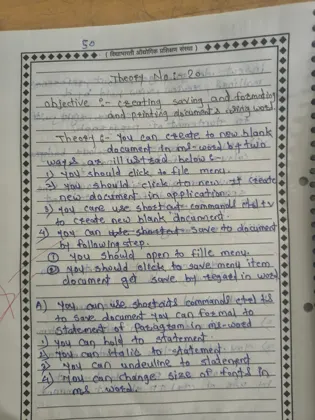 50
( विद्याभारती औद्योगिक प्रशिक्षण संस्था )
Theory No :- 20
objective :- creating saving and formating
and printing documents using word.
Theory :- You can create to new blank
document to ms-word by two
ways as illustrad below :-
1) You should click to file menu.
2) You should click to new It create
new document in application.
3) You cane use shortcut command ctrl+
to create new blank documend.
4) You can save to document
by following step.
① You should open to fille menu.
② You should click to save menu item
document get save by in word
You can use shortcuts command ctrl +s
to save document you can formal to
statement of Paragram in ms-word
1) You can bold to statement.
2) You can Italic to statement
3) You can undeuline to statement
4) You can change size of fonts in
ms word.